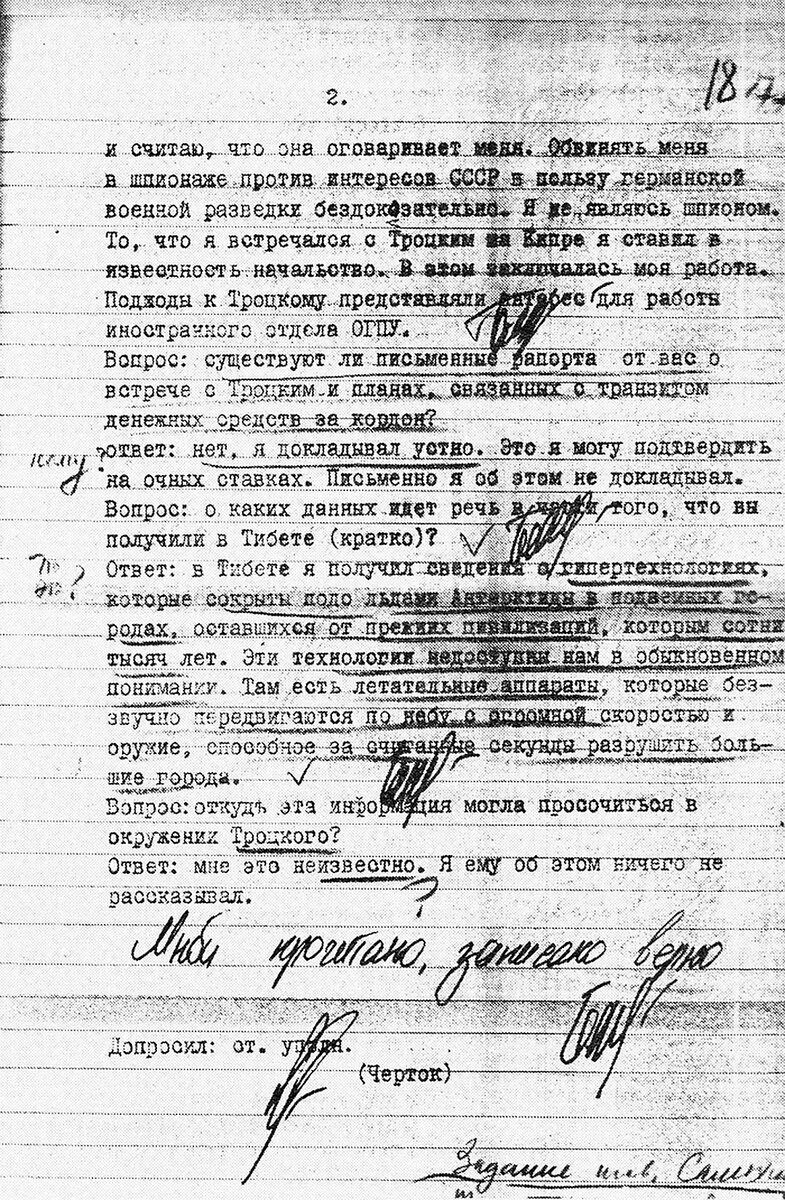 2.
18
и считаю, что она оговаривает меня. Обвинять меня
в шпионаже против интересов СССР в пользу германской
военной разведки бездоказательно. Я не являюсь шпионом.
То, что я встречался с Троцким на Кипре я ставил в
известность начальство. В этом заключалась моя работа.
Подходы к Троцкому представляли интерес для работы
иностранного отдела ОГПУ.
Вопрос: существуют ли письменные рапорта от вас о
встрече с Троцким и планах, связанных с транзитом
денежных средств за кордон?
кому?
ответ: нет, я докладывал устно. Это я могу подтвердить
на очных ставках. Письменно я об этом не докладывал.
Вопрос: о каких данных идет речь в части того, что вы
получили в Тибете (кратко)?
Ответ: в Тибете я получил сведения о гипертехнологиях,
которые сокрыты подо льдами Антарктиды в подземных го-
родах, оставшихся от прежних цивилизаций, которым сотни
тысяч лет. Эти технологии недоступны нам в обыкновенном
понимании. Там есть летательные аппараты, которые без-
звучно передвигаются по небу с огромной скоростью и
оружие, способное за считанные секунды разрушить боль-
шие города.
Вопрос: откудь эта информация могла просочиться в
окружении Троцкого?
Ответ: мне это неизвестно. Я ему об этом ничего не
рассказывал.
?
Мной прочитано, записано верно
Допросил: ст. уполн.
(Черток)
Задание тов.